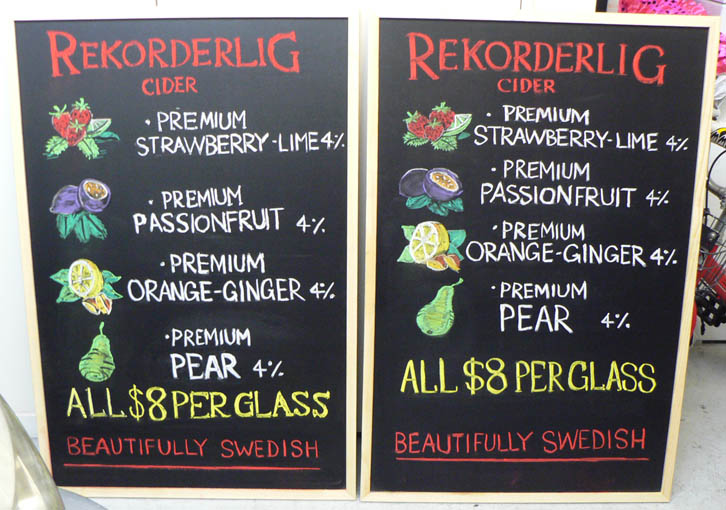 REKORDERLIG
CIDER
· PREMIUM
STRAWBERRY-LIME 4%
· PREMIUM
PASSIONFRUIT 4%
· PREMIUM
ORANGE-GINGER 4%
· PREMIUM
PEAR 4%
ALL $8 PER GLASS
BEAUTIFULLY SWEDISH
REKORDERLIG
CIDER
· PREMIUM
STRAWBERRY-LIME 4%
· PREMIUM
PASSIONFRUIT 4%
· PREMIUM
ORANGE-GINGER 4%
· PREMIUM
PEAR 4%
ALL $8 PER GLASS
BEAUTIFULLY SWEDISH